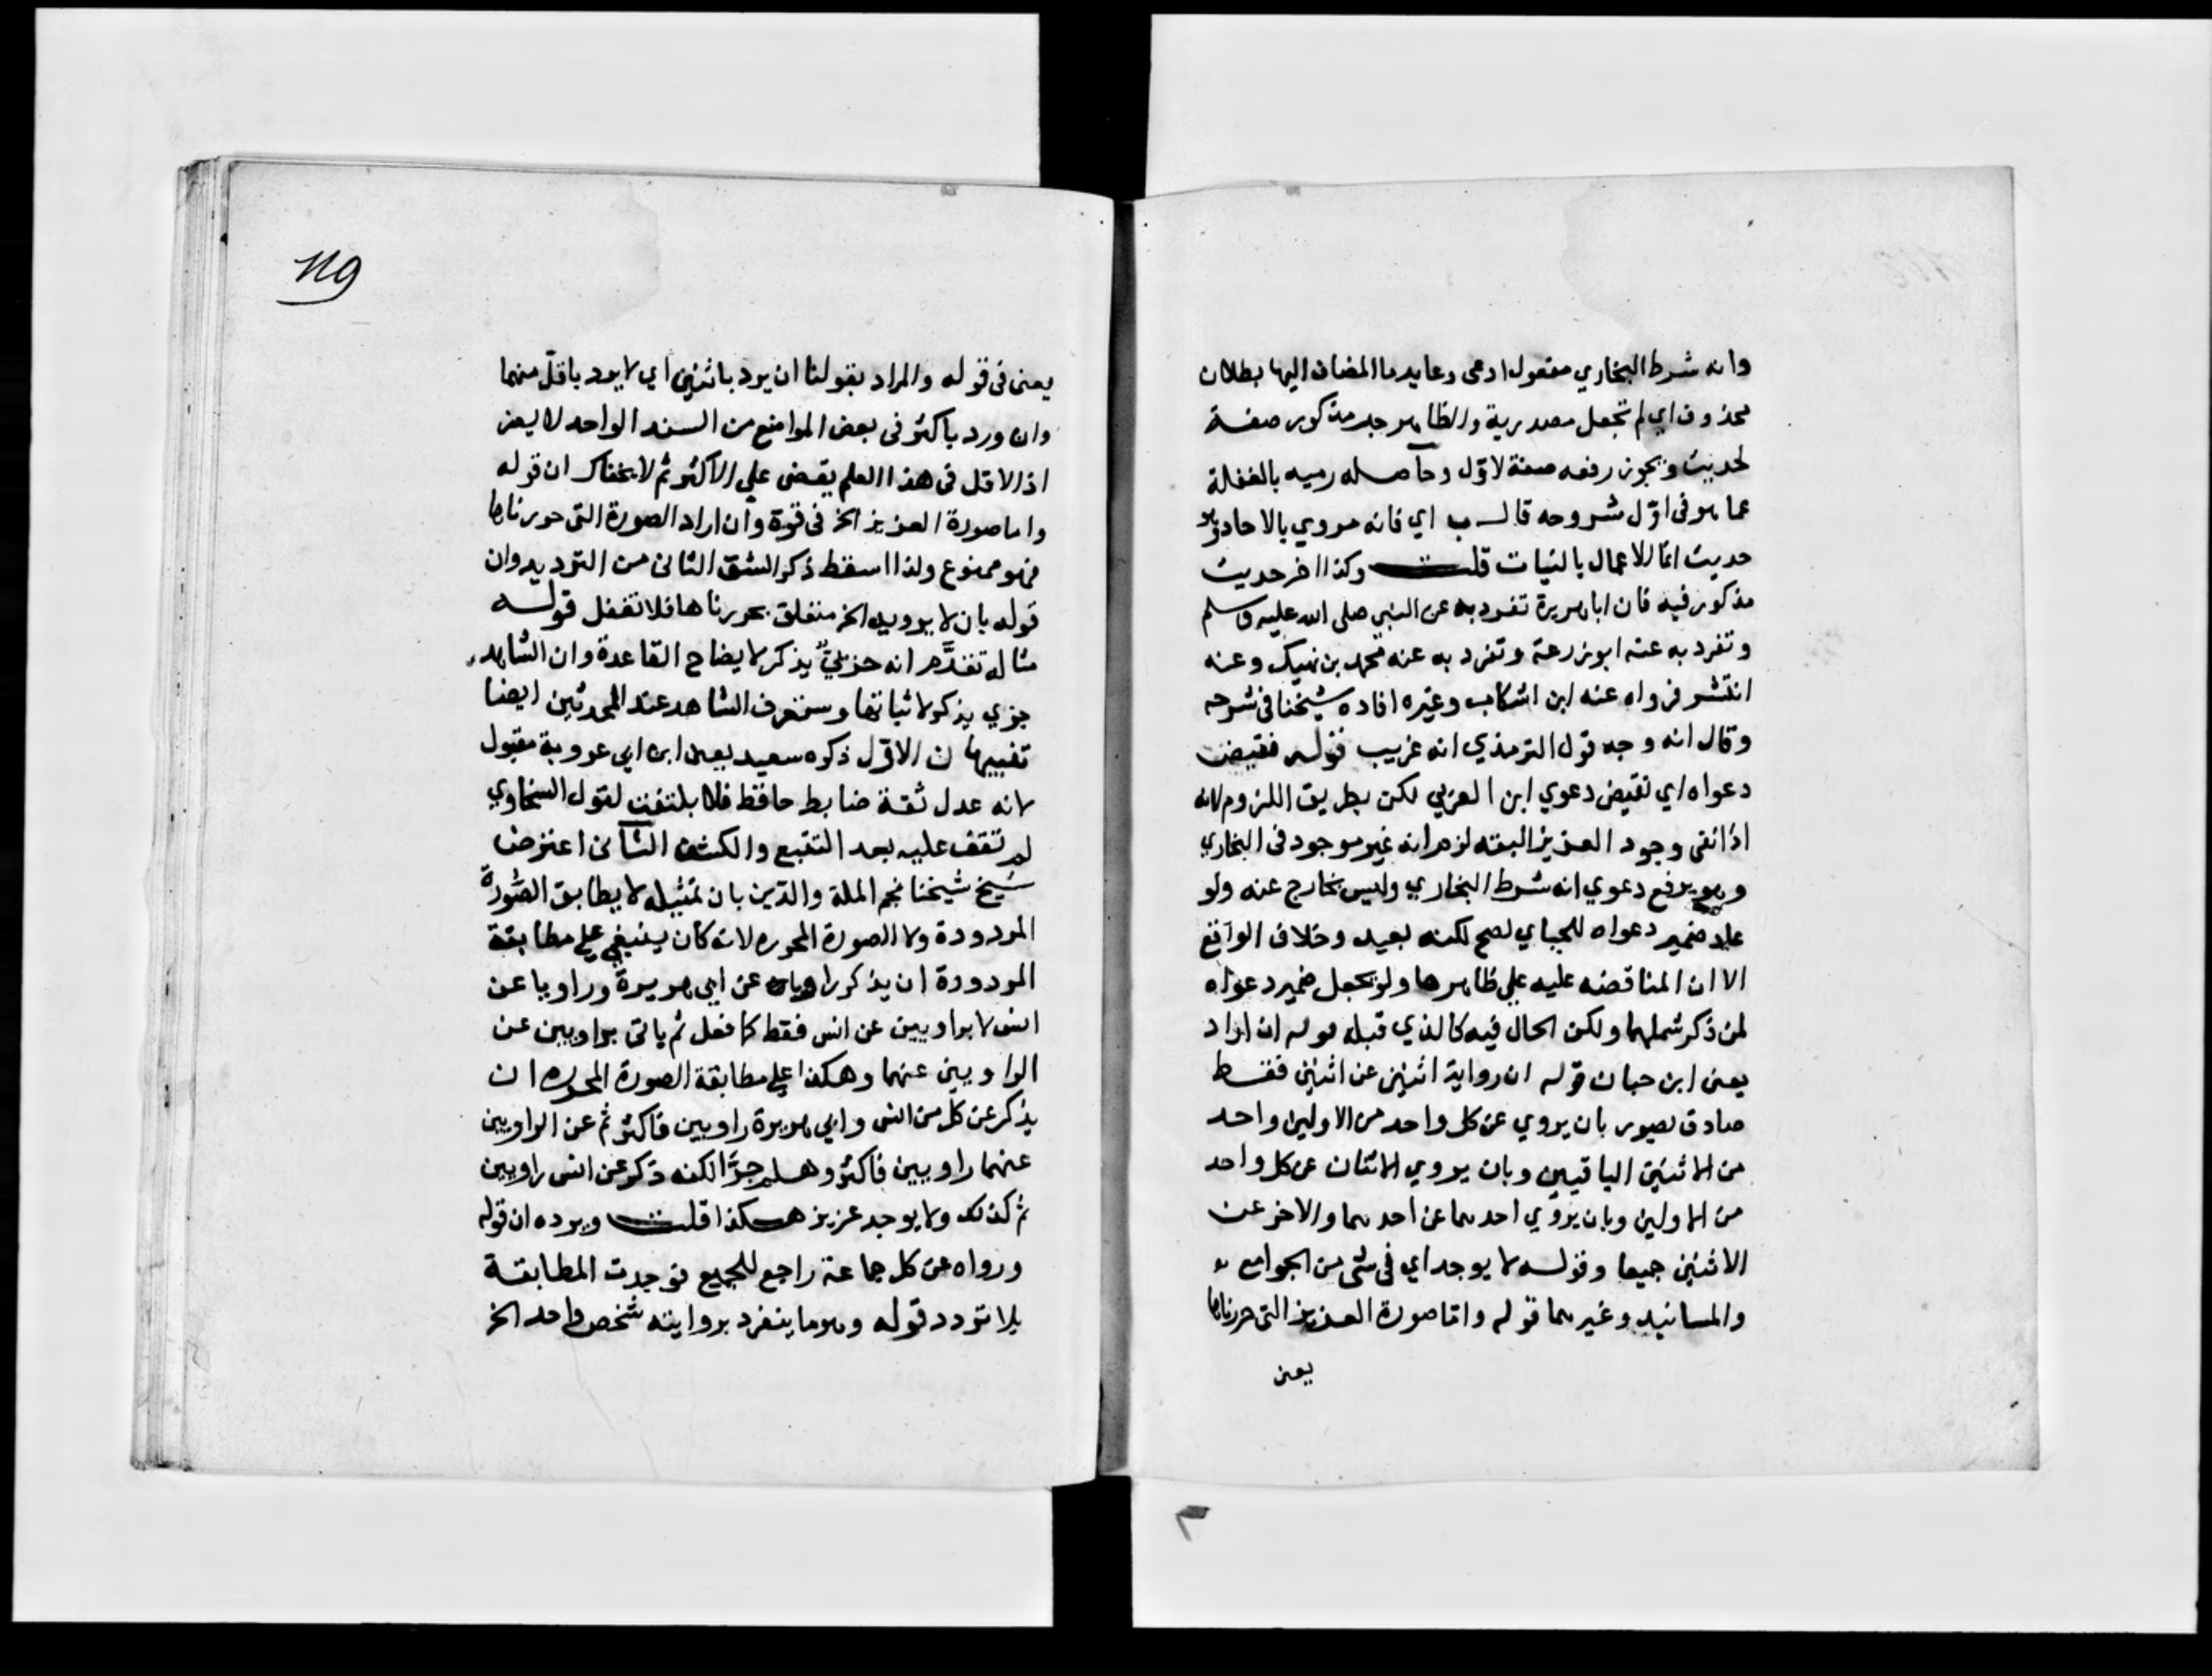 وانه شرط البخاري مفعول ادعى وعايد ما المضاف اليها بطلان
محذوف اي لم تجعل مصدرية والظاهر جر مذكور صفة
لحديث ويجوز رفعه صفة لاول وحاصله رميه بالغفلة
عما هو في اول شروحه قال ب اي فانه مروي بالاحاد وهو
حديث انما الاعمال بالنيات قلت وكذا اخر حديث
مذكور فيه فان ابا هريرة تفرد به عن النبي صلى الله عليه وسلم
وتفرد به عنه ابو زرعة وتفرد به عنه محمد بن نهيك وعنه
انتشر فرواه عنه ابن اشكاب وغيره افاده شيخنا في شرحه
وقال انه وجه قول الترمذي انه غريب قوله نقيض
دعواه اي نقيض دعوي ابن العربي لكن بطريق اللزوم لانه
اذا نفى وجود العزيز البته لزم انه غير موجود في البخاري
وهو يرفع دعوي انه شرط البخاري وليس بخارج عنه ولو
عاد ضمير دعواه للجباي لصح لكنه بعيد وخلاف الواقع
الا ان المناقضه عليه علي ظاهرها ولو بجعل ضمير دعواه
لمن ذكر شملهما ولكن الحال فيه كالذي قبله قوله ان اراد
يعنى ابن حبان قوله ان رواية اثنين عن اثنين فقط
صادق بصور بان يروي عن كل واحد من الاولين واحد
من الاثنين الباقيين وبان يروي الاثنان عن كل واحد
من الاولين وبان يروي احدهما عن احدهما والاخر عن
الاثنين جميعا وقوله لا يوجد اي في شى من الجوامع
والمسانيد وغيرهما قوله واما صورة العزيز التى حررناها
يعنى
119
يعنى في قوله والمراد بقولنا ان يرد باثنين اي لا يرد باقل منهما
وان ورد باكثر في بعض المواضع من السند الواحد لا يضر
اذ الاقل في هذا العلم يقضى علي الاكثر ثم لا يخفاك ان قوله
واما صورة العزيز الخ في قوة وان اراد الصورة التى حررناها
فهو ممنوع ولذا اسقط ذكر الشق الثاني من الترديد وان
قوله بان لا يرويه الخ متعلق بحررناها فلا تغفل قوله
مثاله تقدم انه جزئي يذكر لايضاح القاعدة وان الشاهد
جزي يذكر لاثباتها وستعرف الشاهد عند المحدثين ايضا
تنبيهان الاول ذكره سعيد يعنى ابن ابي عروبة مقبول
لانه عدل ثقة ضابط حافظ فلا يلتفت لقول السخاوي
لم نقف عليه بعد التتبع والكشف الثاني اعترض
شيخ شيخنا نجم الملة والدين بان تمثيله لا يطابق الصورة
المردودة ولا الصورة المحرره لانه كان ينبغي علي مطابقة
المردودة ان يذكر راويا عن ابي هريرة وراويا عن
انس لا براويين عن انس فقط كما فعل ثم ياتى براويين عن
الراويين عنهما وهكذا علي مطابقة الصورة المحرره ان
يذكر عن كل من انس وابي هريرة راويين فاكثر ثم عن الراويين
عنهما راويين فاكثر وهلم جرا لكنه ذكر عن انس راويين
ثم كذلك ولا يوجد عزيز هكذا قلت ويرده ان قوله
ورواه عن كل جماعة راجع للجميع فوجدت المطابقة
بلا تردد قوله وهو ما ينفرد بروايته شخص واحد الخ